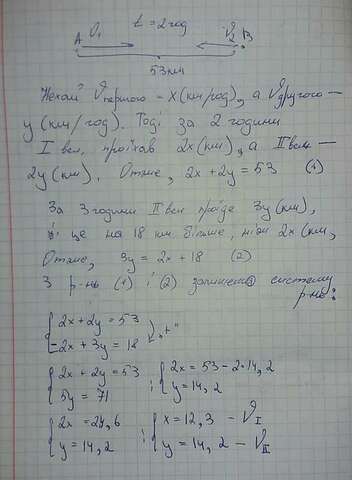 A V₁ t = 2 год V₂ B
53 км
Нехай Vпершого – x (км/год), а Vдругого –
y (км/год). Тоді за 2 години
I вел. проїхав 2x (км), а II вел –
2y (км). Отже, 2x + 2y = 53 (1)
За 3 години II вел проїде 3y (км),
і це на 18 км більше, ніж 2x (км),
Отже, 3y = 2x + 18 (2)
З р-нь (1) і (2) запишемо систему
р-нь:
{ 2x + 2y = 53
-2x + 3y = 18 ) „+"
{ 2x + 2y = 53 ; { 2x = 53 - 2·14,2
5y = 71 y = 14,2
{ 2x = 24,6 { x = 12,3 – V_I
y = 14,2 ; y = 14,2 – V_II